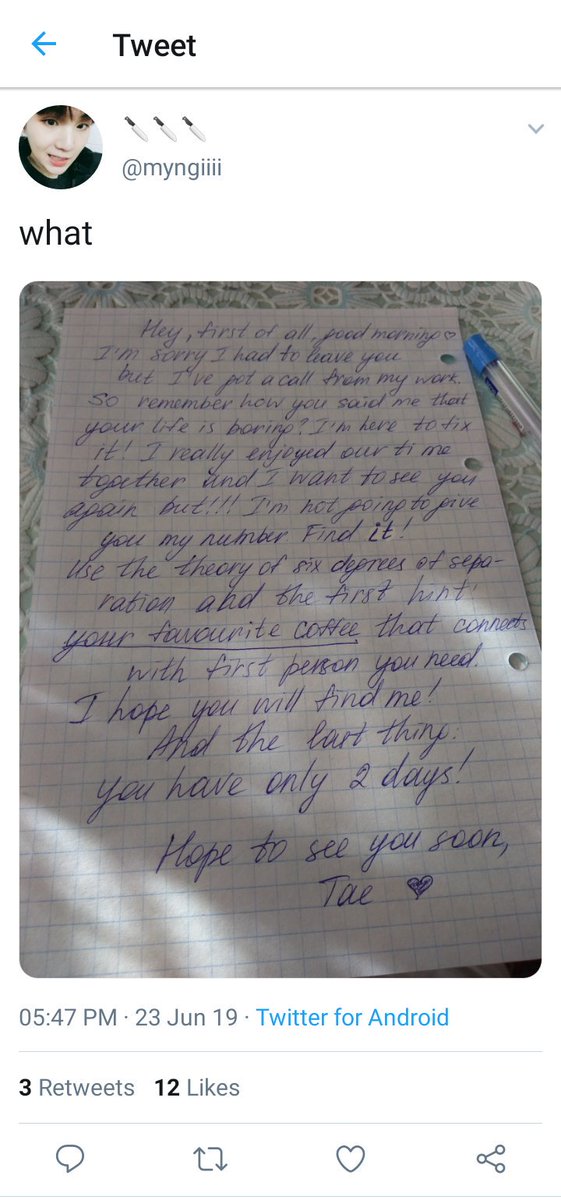 Tweet
🔪🔪🔪
@myngiiii
what
Hey, first of all, good morning♡
I'm sorry I had to leave you
but I've got a call from my work.
So remember how you said me that
your life is boring? I'm here to fix
it! I really enjoyed our time
together and I want to see you
again but!!! I'm not going to give
you my number. Find it!
Use the theory of six degrees of sepa-
ration and the first hint:
your favourite coffee that connects
with first person you need.
I hope you will find me!
And the last thing:
you have only 2 days!
Hope to see you soon,
Tae ♡
05:47 PM · 23 Jun 19 · Twitter for Android
3 Retweets 12 Likes